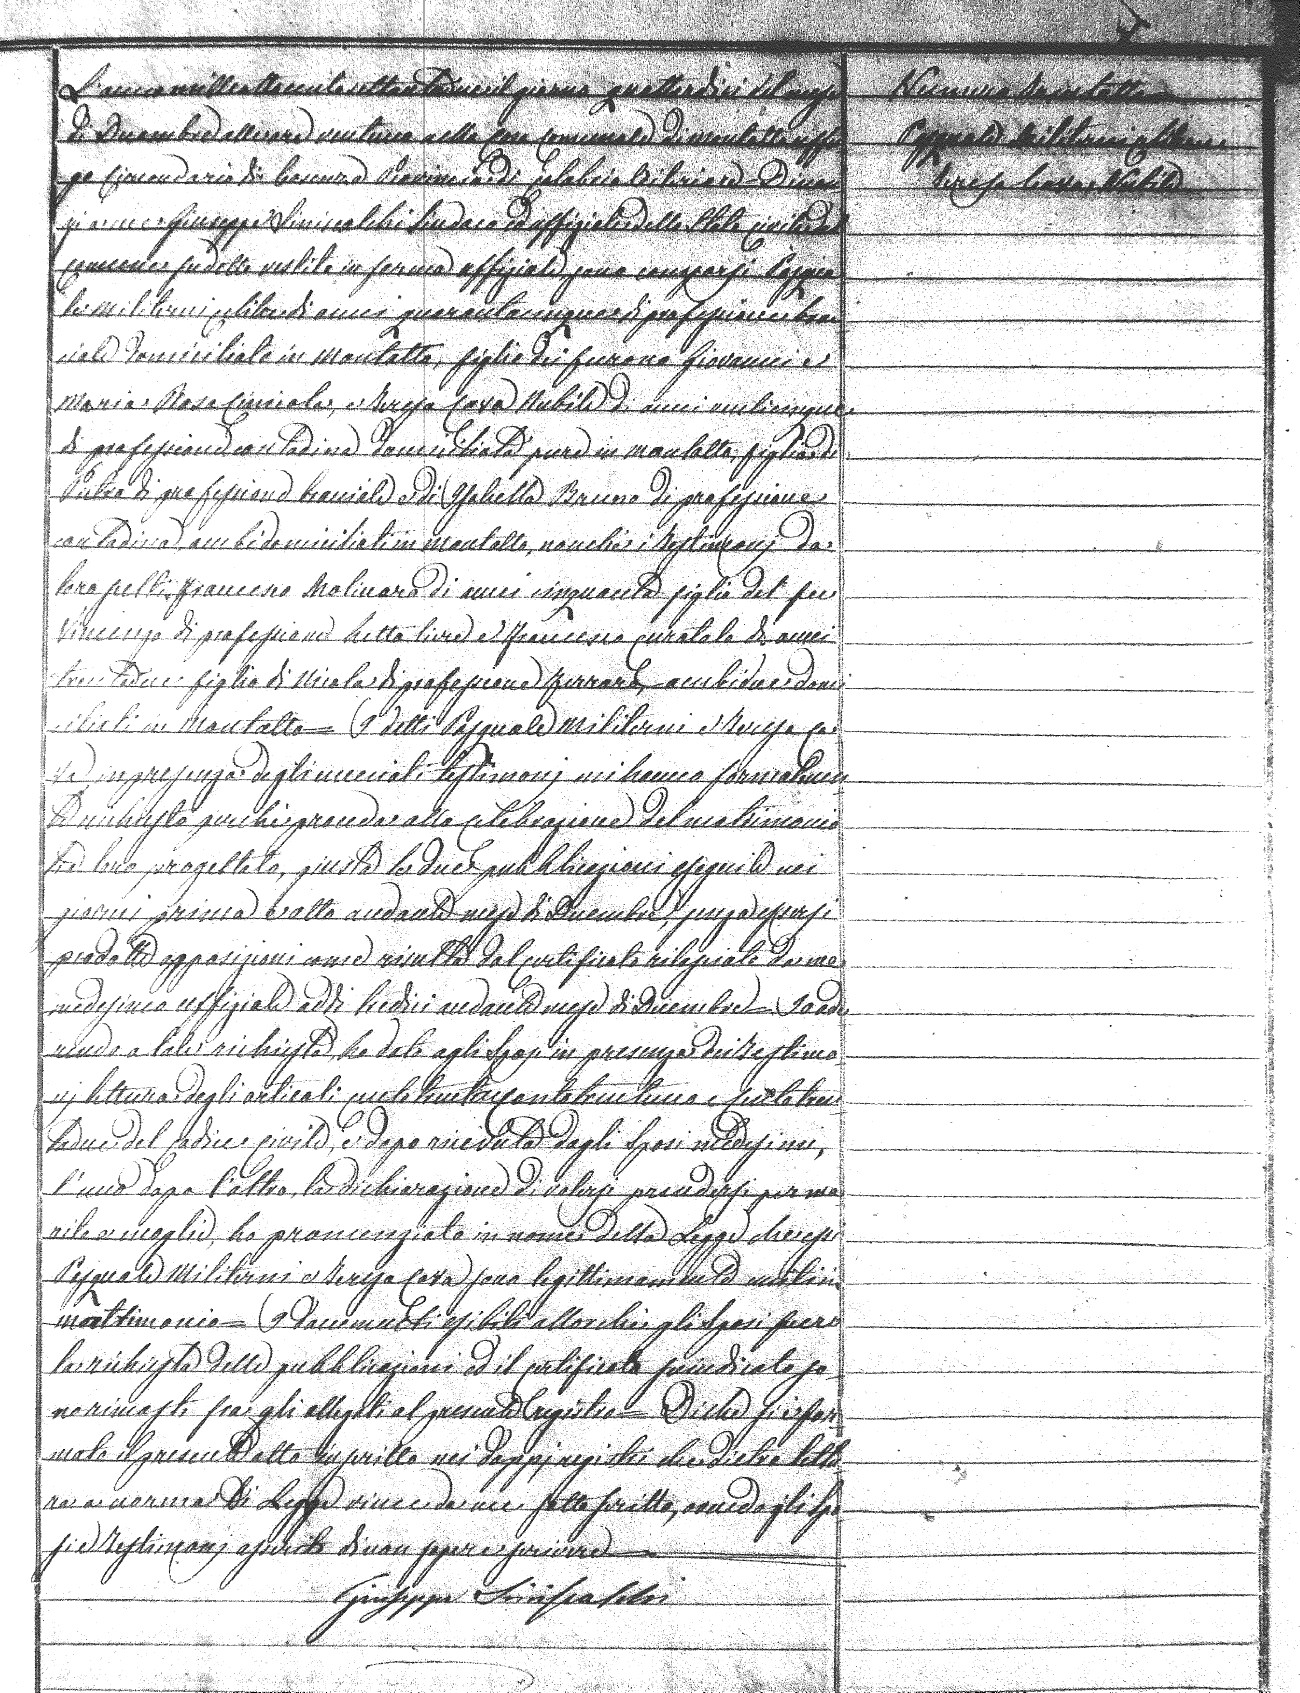 L'anno mille ottocento settantadue il giorno quattordici del mese
di Decembre alle ore ventuna nella casa comunale di Montalto Uffu
go Circondario di Cosenza Provincia di Calabria Citeriore Dinan
zi a me Giuseppe Siniscalchi Sindaco ed uffiziale dello Stato Civile del
comune sudetto vestito in forma uffiziale, sono comparsi Pasqua
le Militerni celibe di anni quarantacinque di professione brac
ciale domiciliato in Montalto, figlio dei furono Giovanni e
Maria Rosa e Teresa Cava Nubile di anni venticinque
di professione contadina domiciliata pure in Montalto, figlia di
Pietro di professione bracciale e di Isabella Bruno di professione
contadina, ambi domiciliati in Montalto, nonchè i Testimonj da
loro scelti, Francesco Molinaro di anni cinquanta figlio del fu
Vincenzo di professione e Francesco Curatolo di anni
trentadue figlio di Nicola di professione Ferraro, ambidue domi
ciliati in Montalto= I detti Pasquale Militerni e Teresa Ca
va in presenza degli enunciati testimonj mi hanno formalmen
te richiesto perchè proceda alla celebrazione del matrimonio
tra loro progettato, giusta le due pubblicazioni eseguite nei
giorni prima e otto andante mese di Decembre, senza essersi
prodotte opposizioni come risulta dal certificato rilasciato da me
medesimo uffiziale addì tredici andante mese di Decembre= Io ade
rendo a tale richiesta, ho dato agli Sposi in presenza dei Testimo
nj lettura degli articoli centotrenta, centotrentuno e centotren
tadue del Codice Civile, e dopo ricevuta dagli Sposi medesimi,
l'uno dopo l'altro, la dichiarazione di volersi prendersi per ma
rito e moglie, ho pronunziato in nome della Legge che essi
Pasquale Militerni e Teresa Cava sono legittimamente uniti in
matrimonio= I documenti esibiti allorchè gli Sposi fecero
la richiesta delle pubblicazioni ed il certificato succitato so
no rimasti fra gli allegati al presente registro= Di che si è for
mato il presente atto inscritto nei doppj registri che dietro lettu
ra a norma di Legge viene da me sottoscritto, avendo gli Spo
si e Testimonj asserito di non sapere scrivere
Giuseppe Siniscalchi
Numero Sessantotto
Pasquale Militerni celibe e
Teresa Cava Nubile